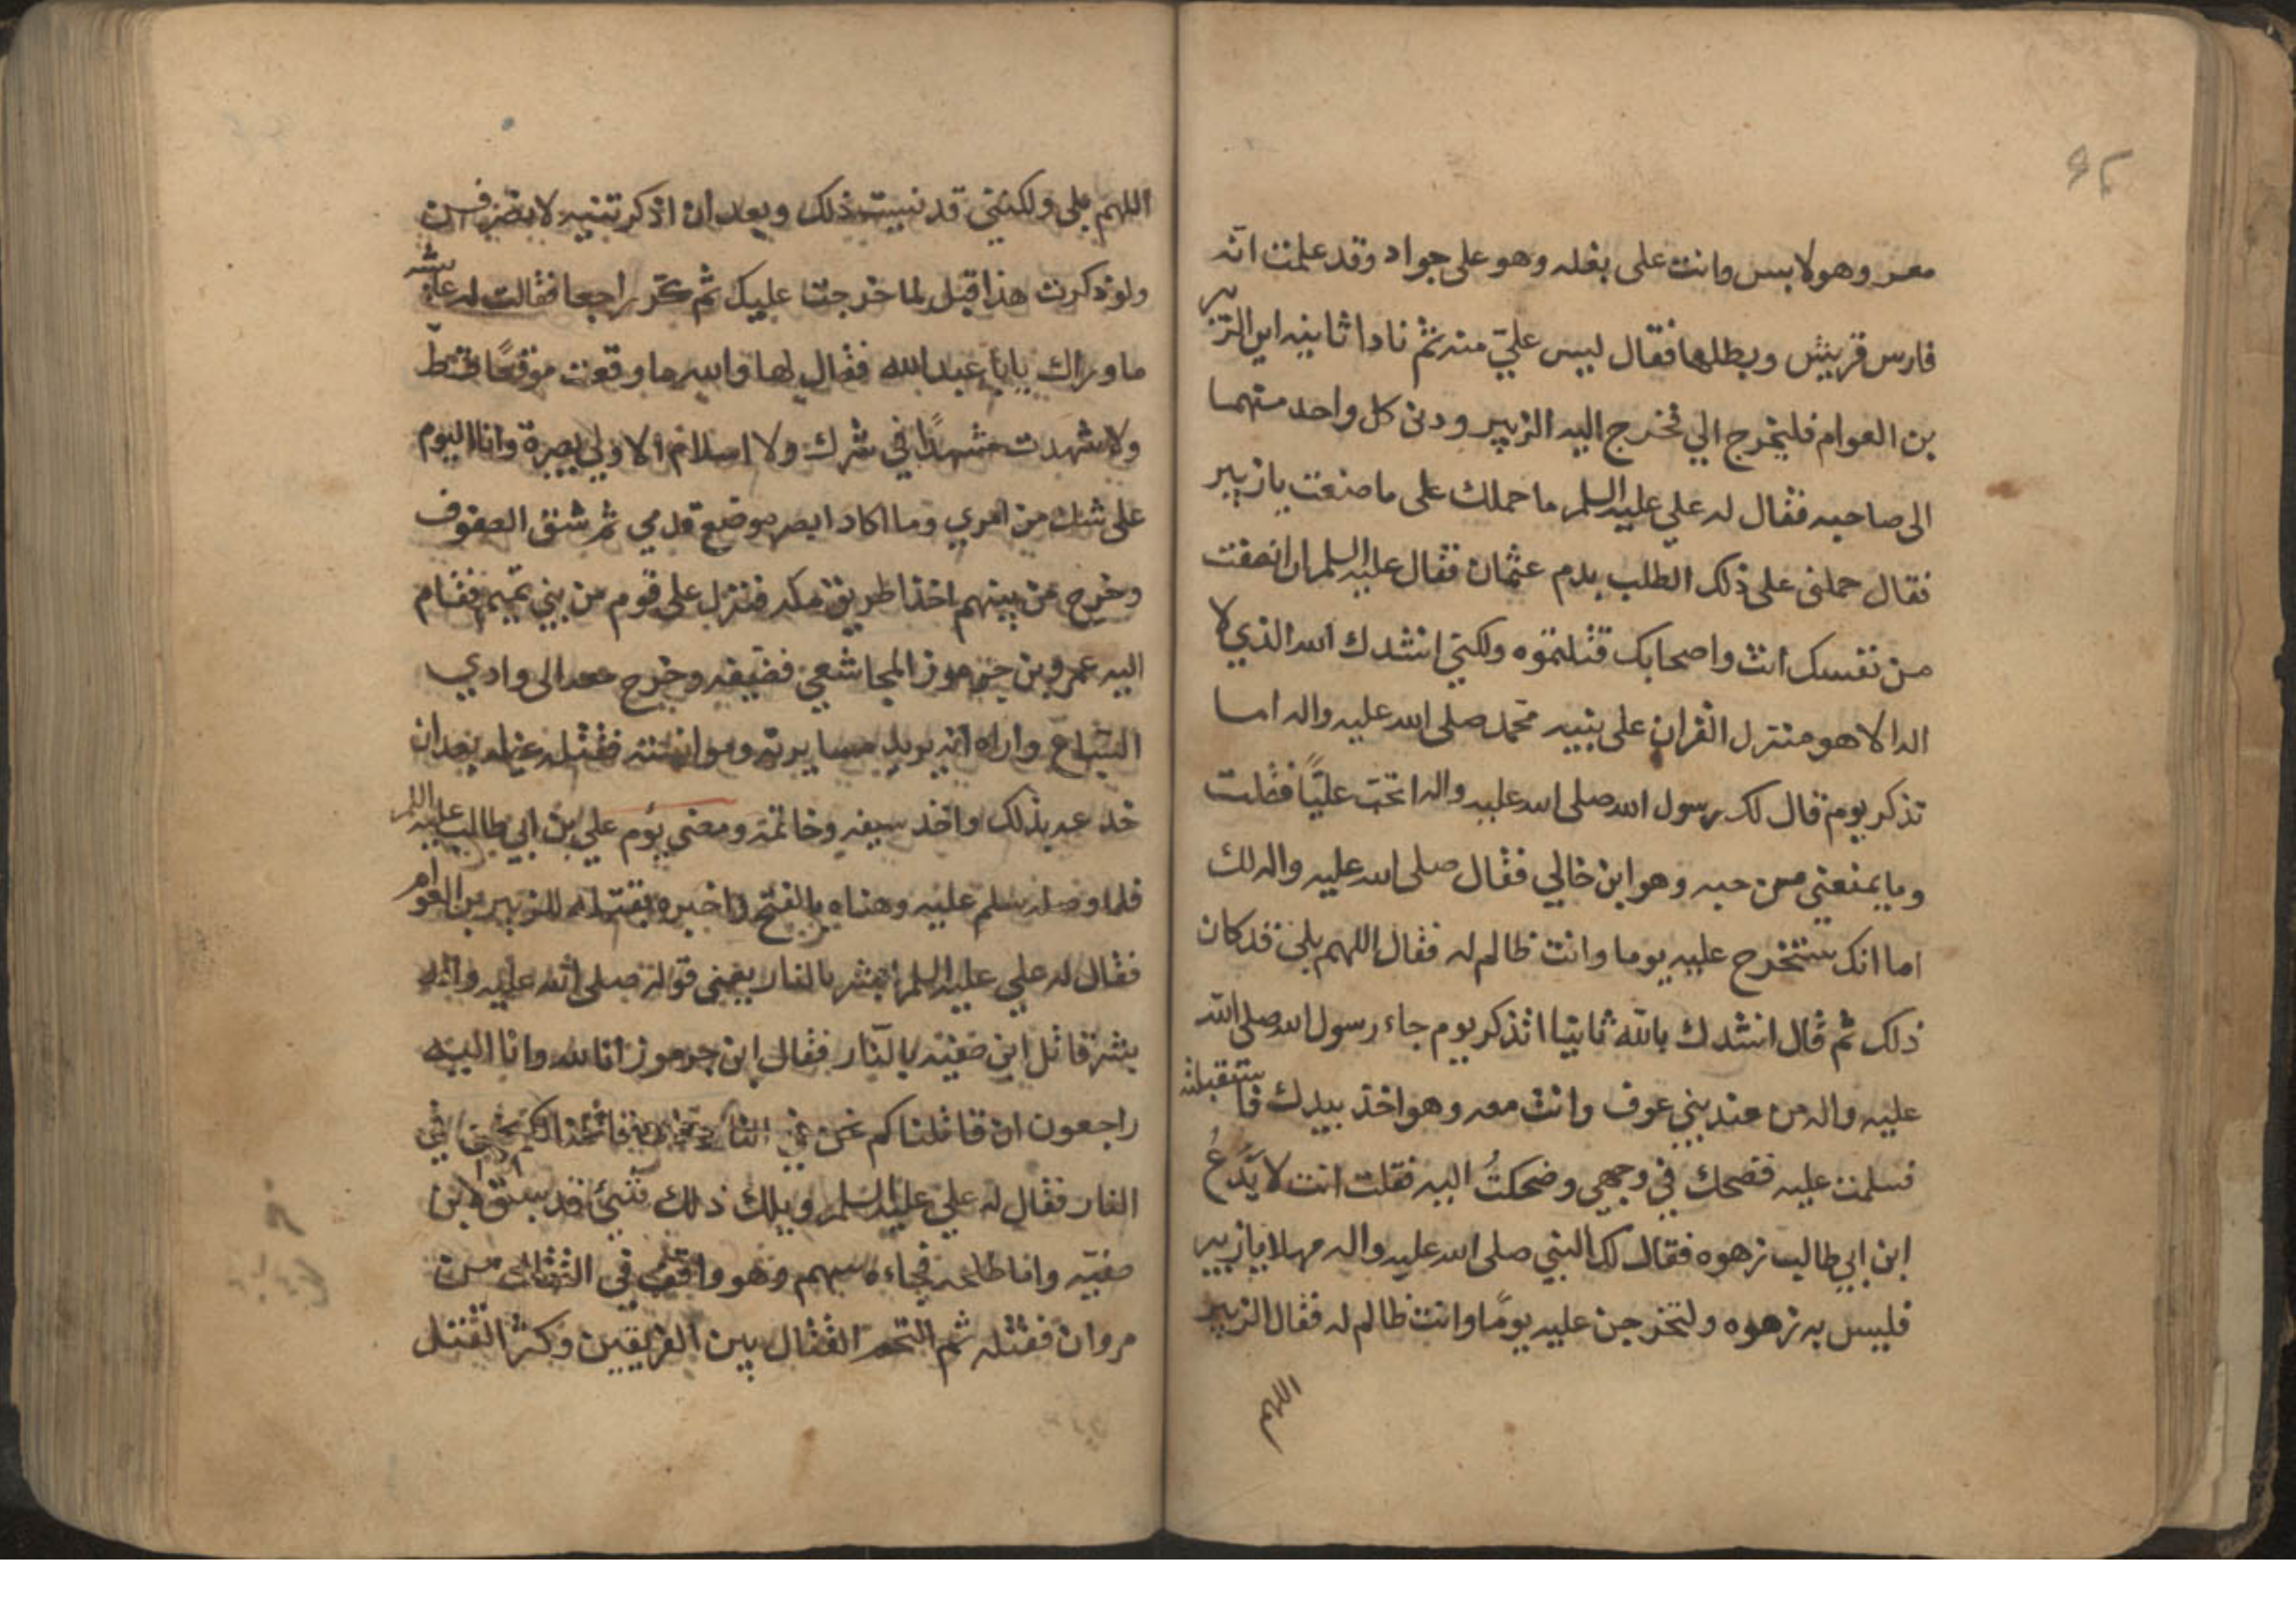 ٩٢
معه وهو لابس وانت على بغله وهو على جواد وقد علمت انه
فارس قريش وبطلها فقال ليس عليّ منه ثم نادا ثانيه اين الزبير
بن العوام فليخرج الي فخرج اليه الزبير ودنى كل واحد منهما
الى صاحبه فقال له علي عليه السلم ما حملك على ما صنعت يازبير
فقال حملنى على ذلك الطلب بدم عثمان فقال عليه السلم ان انصفت
من نفسك انت واصحابك قتلتموه ولكني انشدك الله الذي لا
اله الا هو منزل القران على نبيه محمد صلى الله عليه واله اما
تذكر يوم قال لك رسول الله صلى الله عليه واله اتحب عليًّا فقلت
وما يمنعني من حبه وهو ابن خالي فقال صلى الله عليه واله لك
اما انك ستخرج عليه يوما وانت ظالم له فقال اللهم بلى قد كان
ذلك ثم قال انشدك بالله ثانيا اتذكر يوم جاء رسول الله صلى الله
عليه واله من عند بني عوف وانت معه وهو اخذ بيدك فاستقبلته
فسلمت عليه فضحك في وجهي وضحكتُ اليه فقلت انت لا يَدَعُ
ابن ابي طالب زهوه فقال لك النبي صلى الله عليه واله مهلا يازبير
فليس به زهوه ولتخرجن عليه يومًا وانت ظالم له فقال الزبير
اللهم
اللهم بلى ولكنني قد نسيت ذلك وبعد ان اذكرتنيه لانصرفن
ولو ذكرت هذا قبل لما خرجت عليك ثم كر راجعا فقالت له عايشه
ما وراك يابا عبد الله فقال لها والله ما وقعت موقعًا قطّ
ولا شهدت مشهدًا في شرك ولا اسلام الا ولي بصيرة وانا اليوم
على شك من امري وما اكاد ابصر موضع قدمي ثم شق الصفوف
وخرج من بينهم اخذا طريق مكه فنزل على قوم من بني تميم فقام
اليه عمرو بن جرموز المجاشعي فضيفه وخرج معه الى وادي
السباع واراه انه يريد مسايرته وموانسته فقتله غيله بعد ان
خدعه بذلك واخذ سيفه وخاتمه ومضى يؤم علي بن ابي طالب عليه السلم
فلما وصله سلم عليه وهناه بالفتح واخبره بقتله للزبير بن العوام
فقال له علي عليه السلم ابشر بالنار يعني قوله صلى الله عليه واله
بشر قاتل ابن صفيه بالنّار فقال ابن جرموز انا لله وانا اليه
راجعون ان قاتلناكم نحن في النار وان قاتلنا لكم نحن في
النار فقال له علي عليه السلم ويلك ذلك شيئ قد سبق لابن
صفيّه واما طلحه فجاءه سهم وهو واقف في من
مروان فقتله ثم التحم القتال بين الفريقين وكثر القتل